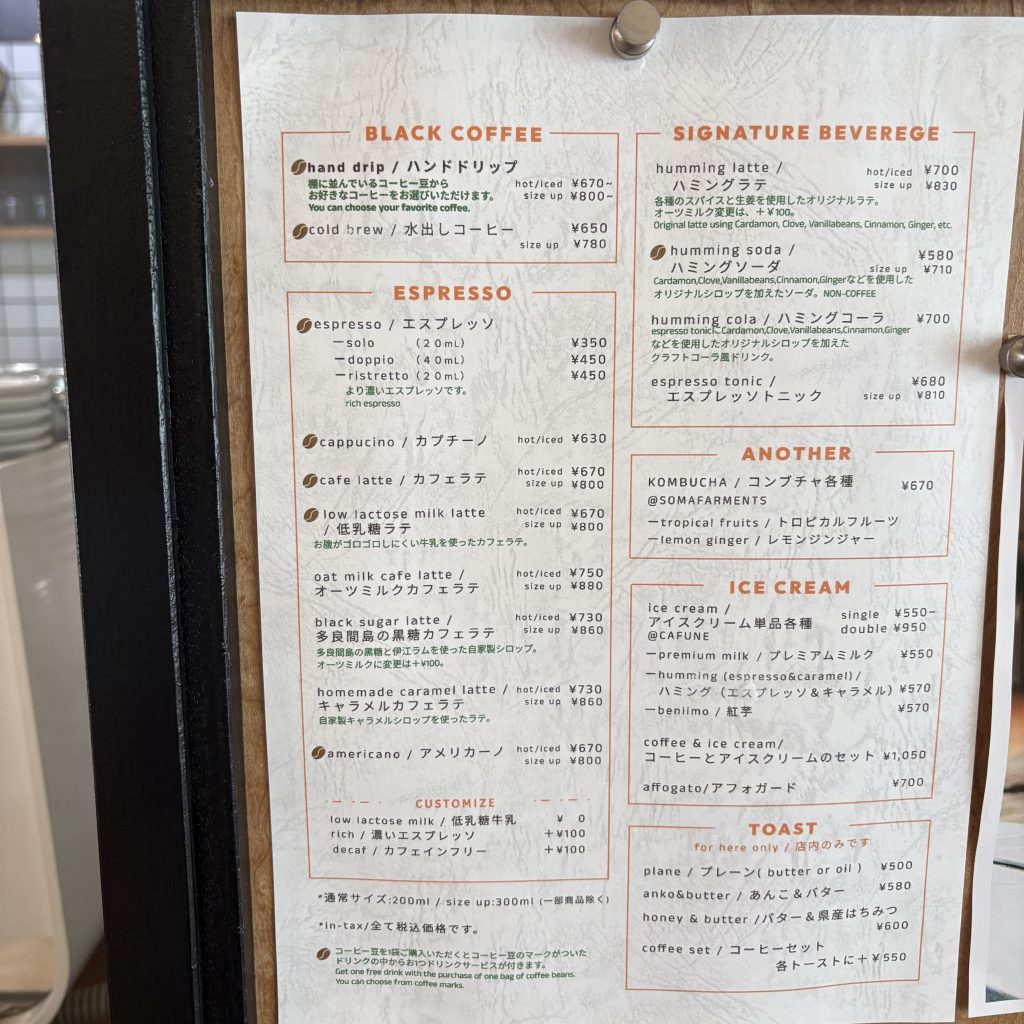 BLACK COFFEE
hand drip / ハンドドリップ
棚に並んでいるコーヒー豆から
お好きなコーヒーをお選びいただけます。
You can choose your favorite coffee.
hot/iced ¥670~
size up ¥800~
cold brew / 水出しコーヒー ¥650
size up ¥780
ESPRESSO
espresso / エスプレッソ
ーsolo (20mL) ¥350
ーdoppio (40mL) ¥450
ーristretto (20mL) ¥450
より濃いエスプレッソです。
rich espresso
cappucino / カプチーノ hot/iced ¥630
cafe latte / カフェラテ hot/iced ¥670
size up ¥800
low lactose milk latte hot/iced ¥670
/ 低乳糖ラテ size up ¥800
お腹がゴロゴロしにくい牛乳を使ったカフェラテ。
oat milk cafe latte / hot/iced ¥750
オーツミルクカフェラテ size up ¥880
black sugar latte / hot/iced ¥730
多良間島の黒糖カフェラテ size up ¥860
多良間島の黒糖と伊江ラムを使った自家製シロップ。
オーツミルクに変更は+¥100。
homemade caramel latte / hot/iced ¥730
キャラメルカフェラテ size up ¥860
自家製キャラメルシロップを使ったラテ。
americano / アメリカーノ hot/iced ¥670
size up ¥800
CUSTOMIZE
low lactose milk / 低乳糖牛乳 ¥ 0
rich / 濃いエスプレッソ +¥100
decaf / カフェインフリー +¥100
*通常サイズ:200ml / size up:300ml (一部商品除く)
*in-tax/全て税込価格です。
コーヒー豆を1袋ご購入いただくとコーヒー豆のマークがついた
ドリンクの中からお1つドリンクサービスが付きます。
Get one free drink with the purchase of one bag of coffee beans.
You can choose from coffee marks.
SIGNATURE BEVEREGE
humming latte / hot/iced ¥700
ハミングラテ size up ¥830
各種のスパイスと生姜を使用したオリジナルラテ。
オーツミルク変更は、+¥100。
Original latte using Cardamon, Clove, Vanillabeans, Cinnamon, Ginger, etc.
humming soda / ¥580
ハミングソーダ size up ¥710
Cardamon,Clove,Vanillabeans,Cinnamon,Gingerなどを使用した
オリジナルシロップを加えたソーダ。NON-COFFEE
humming cola / ハミングコーラ ¥700
espresso tonicにCardamon,Clove,Vanillabeans,Cinnamon,Ginger
などを使用したオリジナルシロップを加えた
クラフトコーラ風ドリンク。
espresso tonic / ¥680
エスプレッソトニック size up ¥810
ANOTHER
KOMBUCHA / コンブチャ各種 ¥670
@SOMAFARMENTS
ーtropical fruits / トロピカルフルーツ
ーlemon ginger / レモンジンジャー
ICE CREAM
ice cream / single ¥550~
アイスクリーム単品各種 double ¥950
@CAFUNE
ーpremium milk / プレミアムミルク ¥550
ーhumming (espresso&caramel) /
ハミング (エスプレッソ&キャラメル) ¥570
ーbeniimo / 紅芋 ¥570
coffee & ice cream/
コーヒーとアイスクリームのセット ¥1,050
affogato/アフォガード ¥700
TOAST
for here only / 店内のみです
plane / プレーン( butter or oil ) ¥500
anko&butter / あんこ&バター ¥580
honey & butter /バター&県産はちみつ
¥600
coffee set / コーヒーセット
各トーストに+¥550